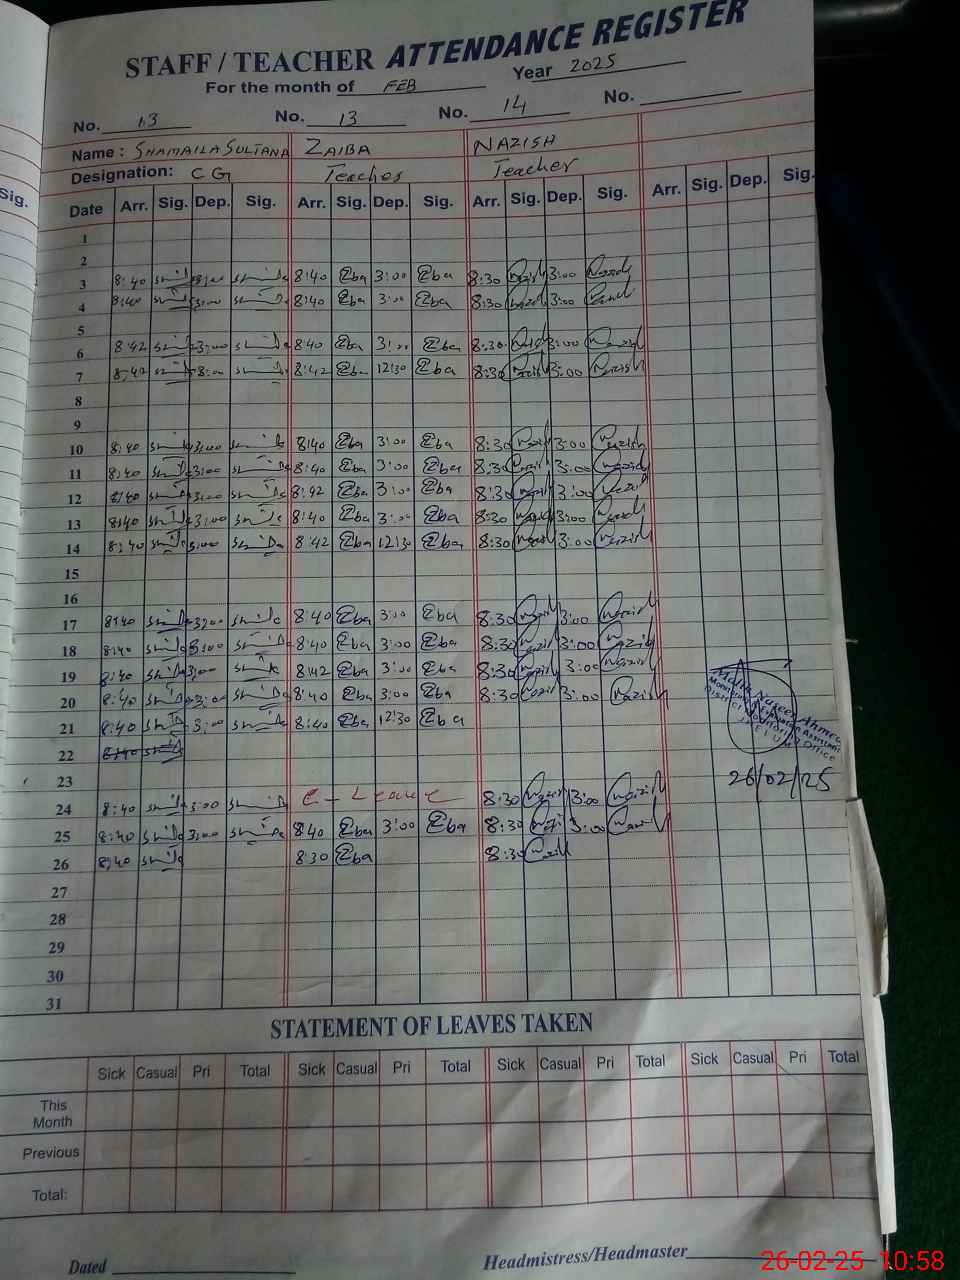 STAFF / TEACHER ATTENDANCE REGISTER
For the month of FEB Year 2025
No. 13 No. 13 No. 14 No.
Name : SHAMAILA SULTANA ZAIBA NAZISH
Designation: CG Teacher Teacher
Sig.
Date Arr. Sig. Dep. Sig. Arr. Sig. Dep. Sig. Arr. Sig. Dep. Sig. Arr. Sig. Dep. Sig.
1
2
3 8:40 8:40 Zba 3:00 Zba 8:30 Nazish 3:00 Nazish
4 8:40 3:00 8:40 Zba 3:00 Zba 8:30 Nazish 3:00
5
6 8:42 3:00 8:40 Zba Zba 8:30 3:00 Nazish
7 8:42 8:00 8:42 Zba 12:30 Zba 8:30 Nazish 3:00 Nazish
8
9
10 8:40 3:00 8:40 Zba 3:00 Zba 8:30 Nazish 3:00 Nazish
11 8:40 3:00 8:40 Zba 3:00 Zba 8:30 Nazish 3:00 Nazish
12 8:40 3:00 8:42 Zba 3:00 Zba 8:30 Nazish 3:00 Nazish
13 8:40 3:00 8:40 Zba 3:00 Zba 8:30 Nazish 3:00 Nazish
14 8:40 3:00 8:42 Zba 12:30 Zba 8:30 Nazish 3:00 Nazish
15
16
17 8:40 3:00 8:40 Zba 3:00 Zba 8:30 Nazish 3:00 Nazish
18 8:40 3:00 8:40 Zba 3:00 Zba 8:30 Nazish 3:00 Nazish
19 8:40 3:00 8:42 Zba 3:00 Zba 8:30 Nazish 3:00 Nazish
20 8:40 3:00 8:40 Zba 3:00 Zba 8:30 Nazish 3:00 Nazish
21 8:40 3:00 8:40 Zba 12:30 Zba
22 8:40
23
24 8:40 3:00 C-Leave 8:30 Nazish 3:00 Nazish
25 8:40 3:00 8:40 Zba 3:00 Zba 8:30 3:00
26 8:40 8:30 Zba 8:30 Nazish
27
28
29
30
31
Malik Nazeer Ahmed
Monitoring & Evaluation Assistant
District Monitoring Office
JHELUM
26/02/25
STATEMENT OF LEAVES TAKEN
Sick Casual Pri Total Sick Casual Pri Total Sick Casual Pri Total Sick Casual Pri Total
This Month
Previous
Total:
Dated Headmistress/Headmaster
26-02-25 10:58